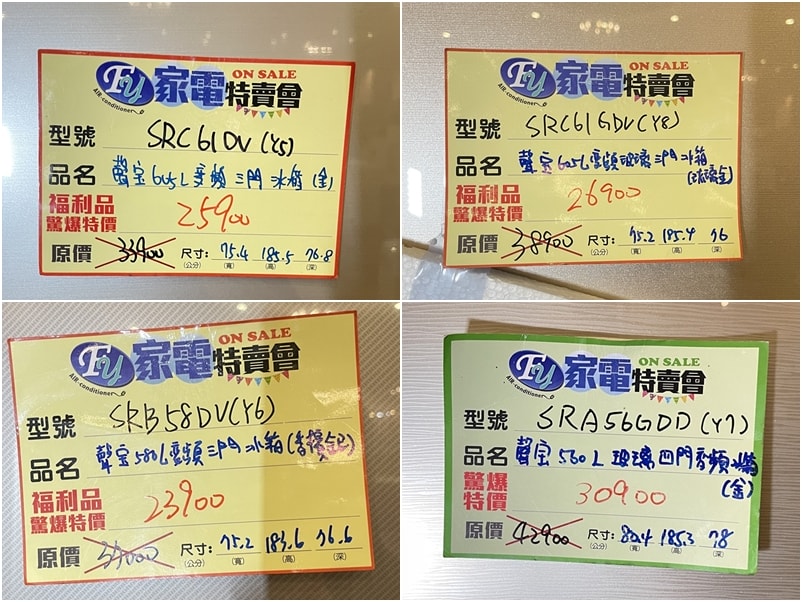 FU 家電特賣會
ON SALE
AIR-conditioner
型號 SRC61DV(Y5)
品名 聲宝605L变頻三門冰箱(金)
福利品
驚爆特價 25900
原價 33900 尺寸:(公分) 75.4(寬) 185.5(高) 76.8(深)
FU 家電特賣會
ON SALE
AIR-conditioner
型號 SRC61GDV(Y8)
品名 聲宝605L變頻玻璃三門冰箱
(琉璃金)
福利品
驚爆特價 26900
原價 38900 尺寸:(公分) 75.2(寬) 185.4(高) 76(深)
FU 家電特賣會
ON SALE
AIR-conditioner
型號 SRB58DV(Y6)
品名 聲宝580L變頻三門冰箱(香檳金)
福利品
驚爆特價 23900
原價 34000 尺寸:(公分) 75.2(寬) 183.6(高) 76.6(深)
FU 家電特賣會
ON SALE
AIR-conditioner
型號 SRA56GDD(Y7)
品名 聲宝560L玻璃四門變頻冰箱
(金)
驚爆
特價 30900
原價 42900 尺寸:(公分) 80.4(寬) 185.3(高) 78(深)